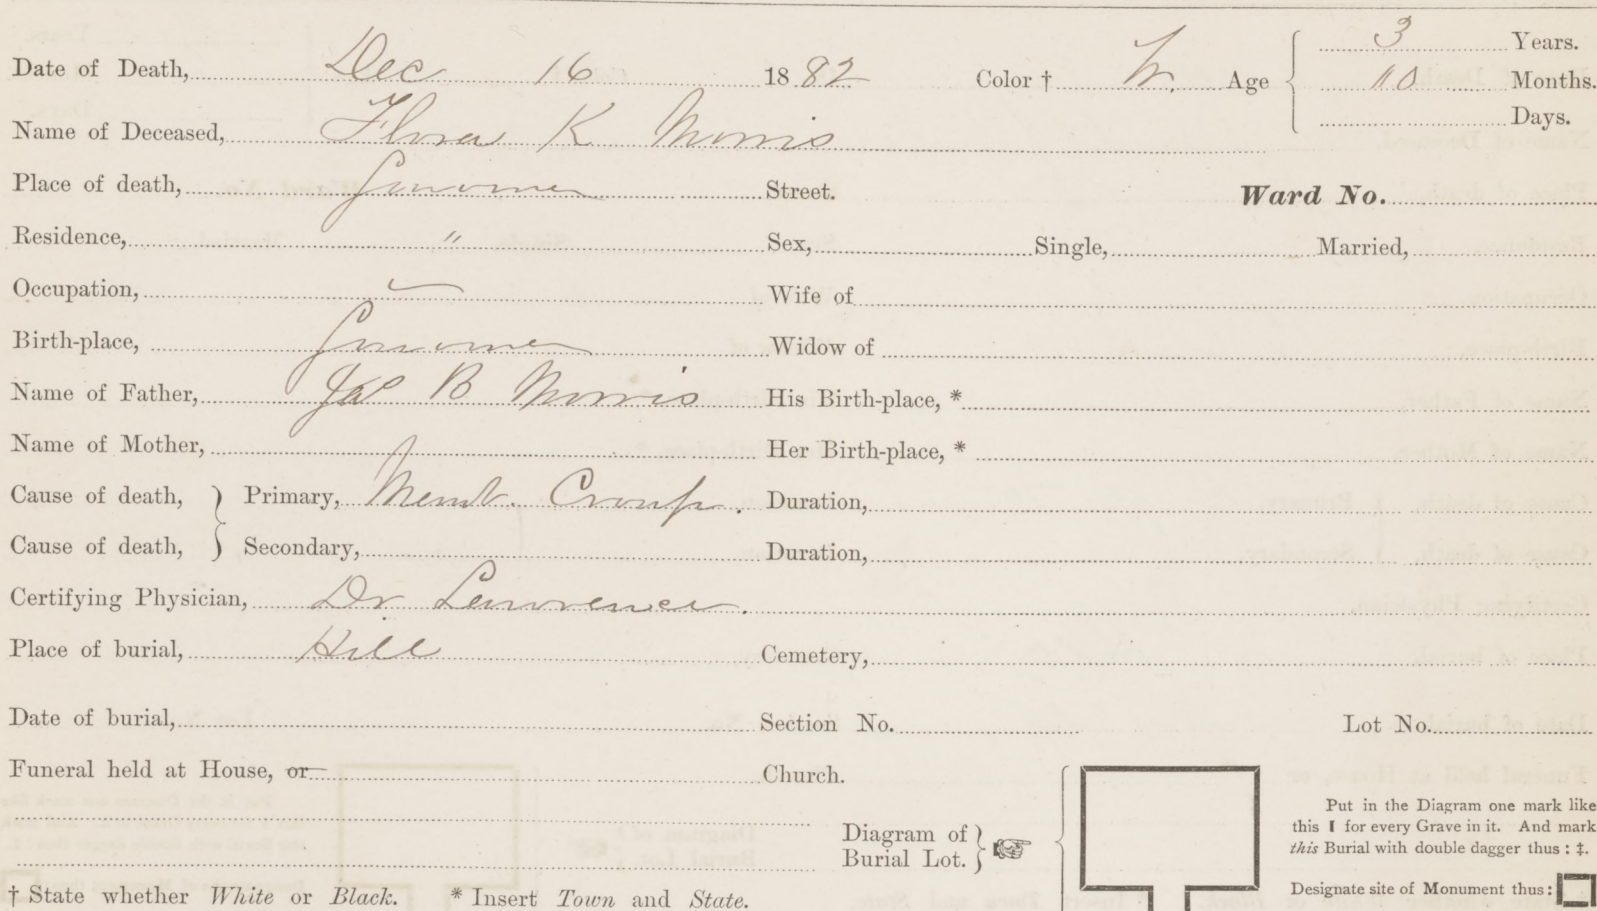 Date of Death, Dec 16 1882 Color † W. Age { 3 Years.
10 Months.
Days.
Name of Deceased, Flora K Morris
Place of death, Sonoma Street. Ward No.
Residence, " Sex, Single, Married,
Occupation, Wife of
Birth-place, Sonoma Widow of
Name of Father, Jas B Morris His Birth-place, *
Name of Mother, Her Birth-place, *
Cause of death, } Primary, Memb. Croup. Duration,
Cause of death, } Secondary, Duration,
Certifying Physician, Dr Lawrence.
Place of burial, Hill Cemetery,
Date of burial, Section No. Lot No.
Funeral held at House, or Church.
Diagram of
Burial Lot. }
Put in the Diagram one mark like
this I for every Grave in it. And mark
this Burial with double dagger thus : ‡.
Designate site of Monument thus :
† State whether White or Black. * Insert Town and State.